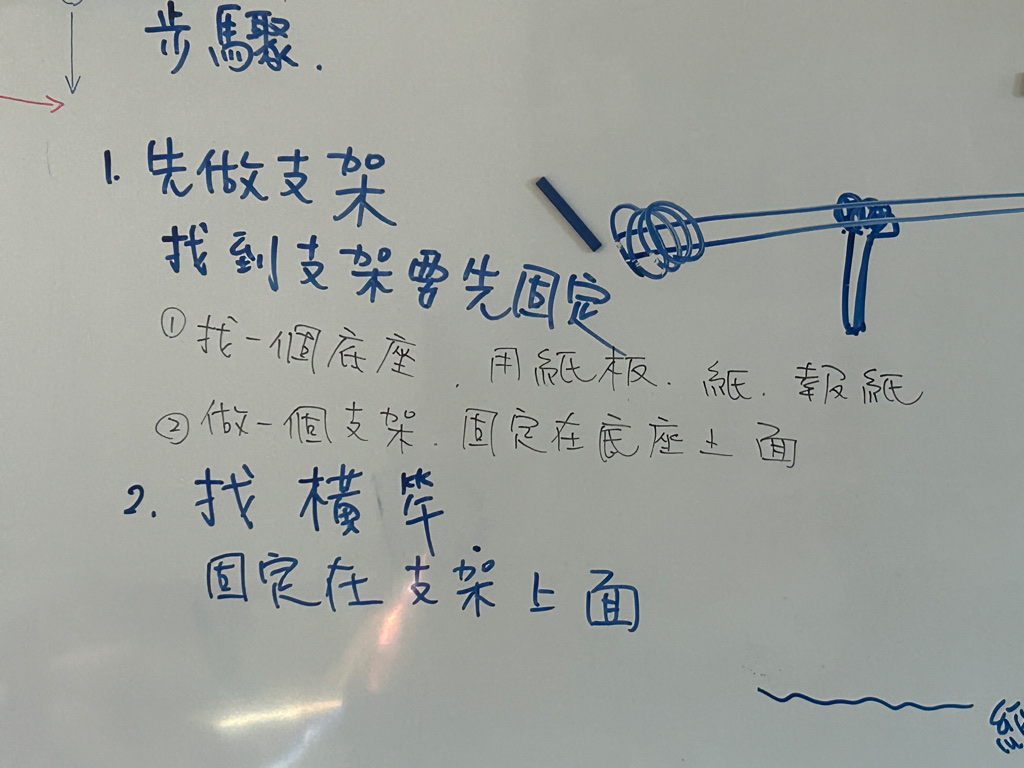 步驟.
1. 先做支架
找到支架要先固定
① 找一個底座. 用紙板. 紙. 報紙
② 做一個支架. 固定在底座上面
2. 找橫竿
固定在支架上面